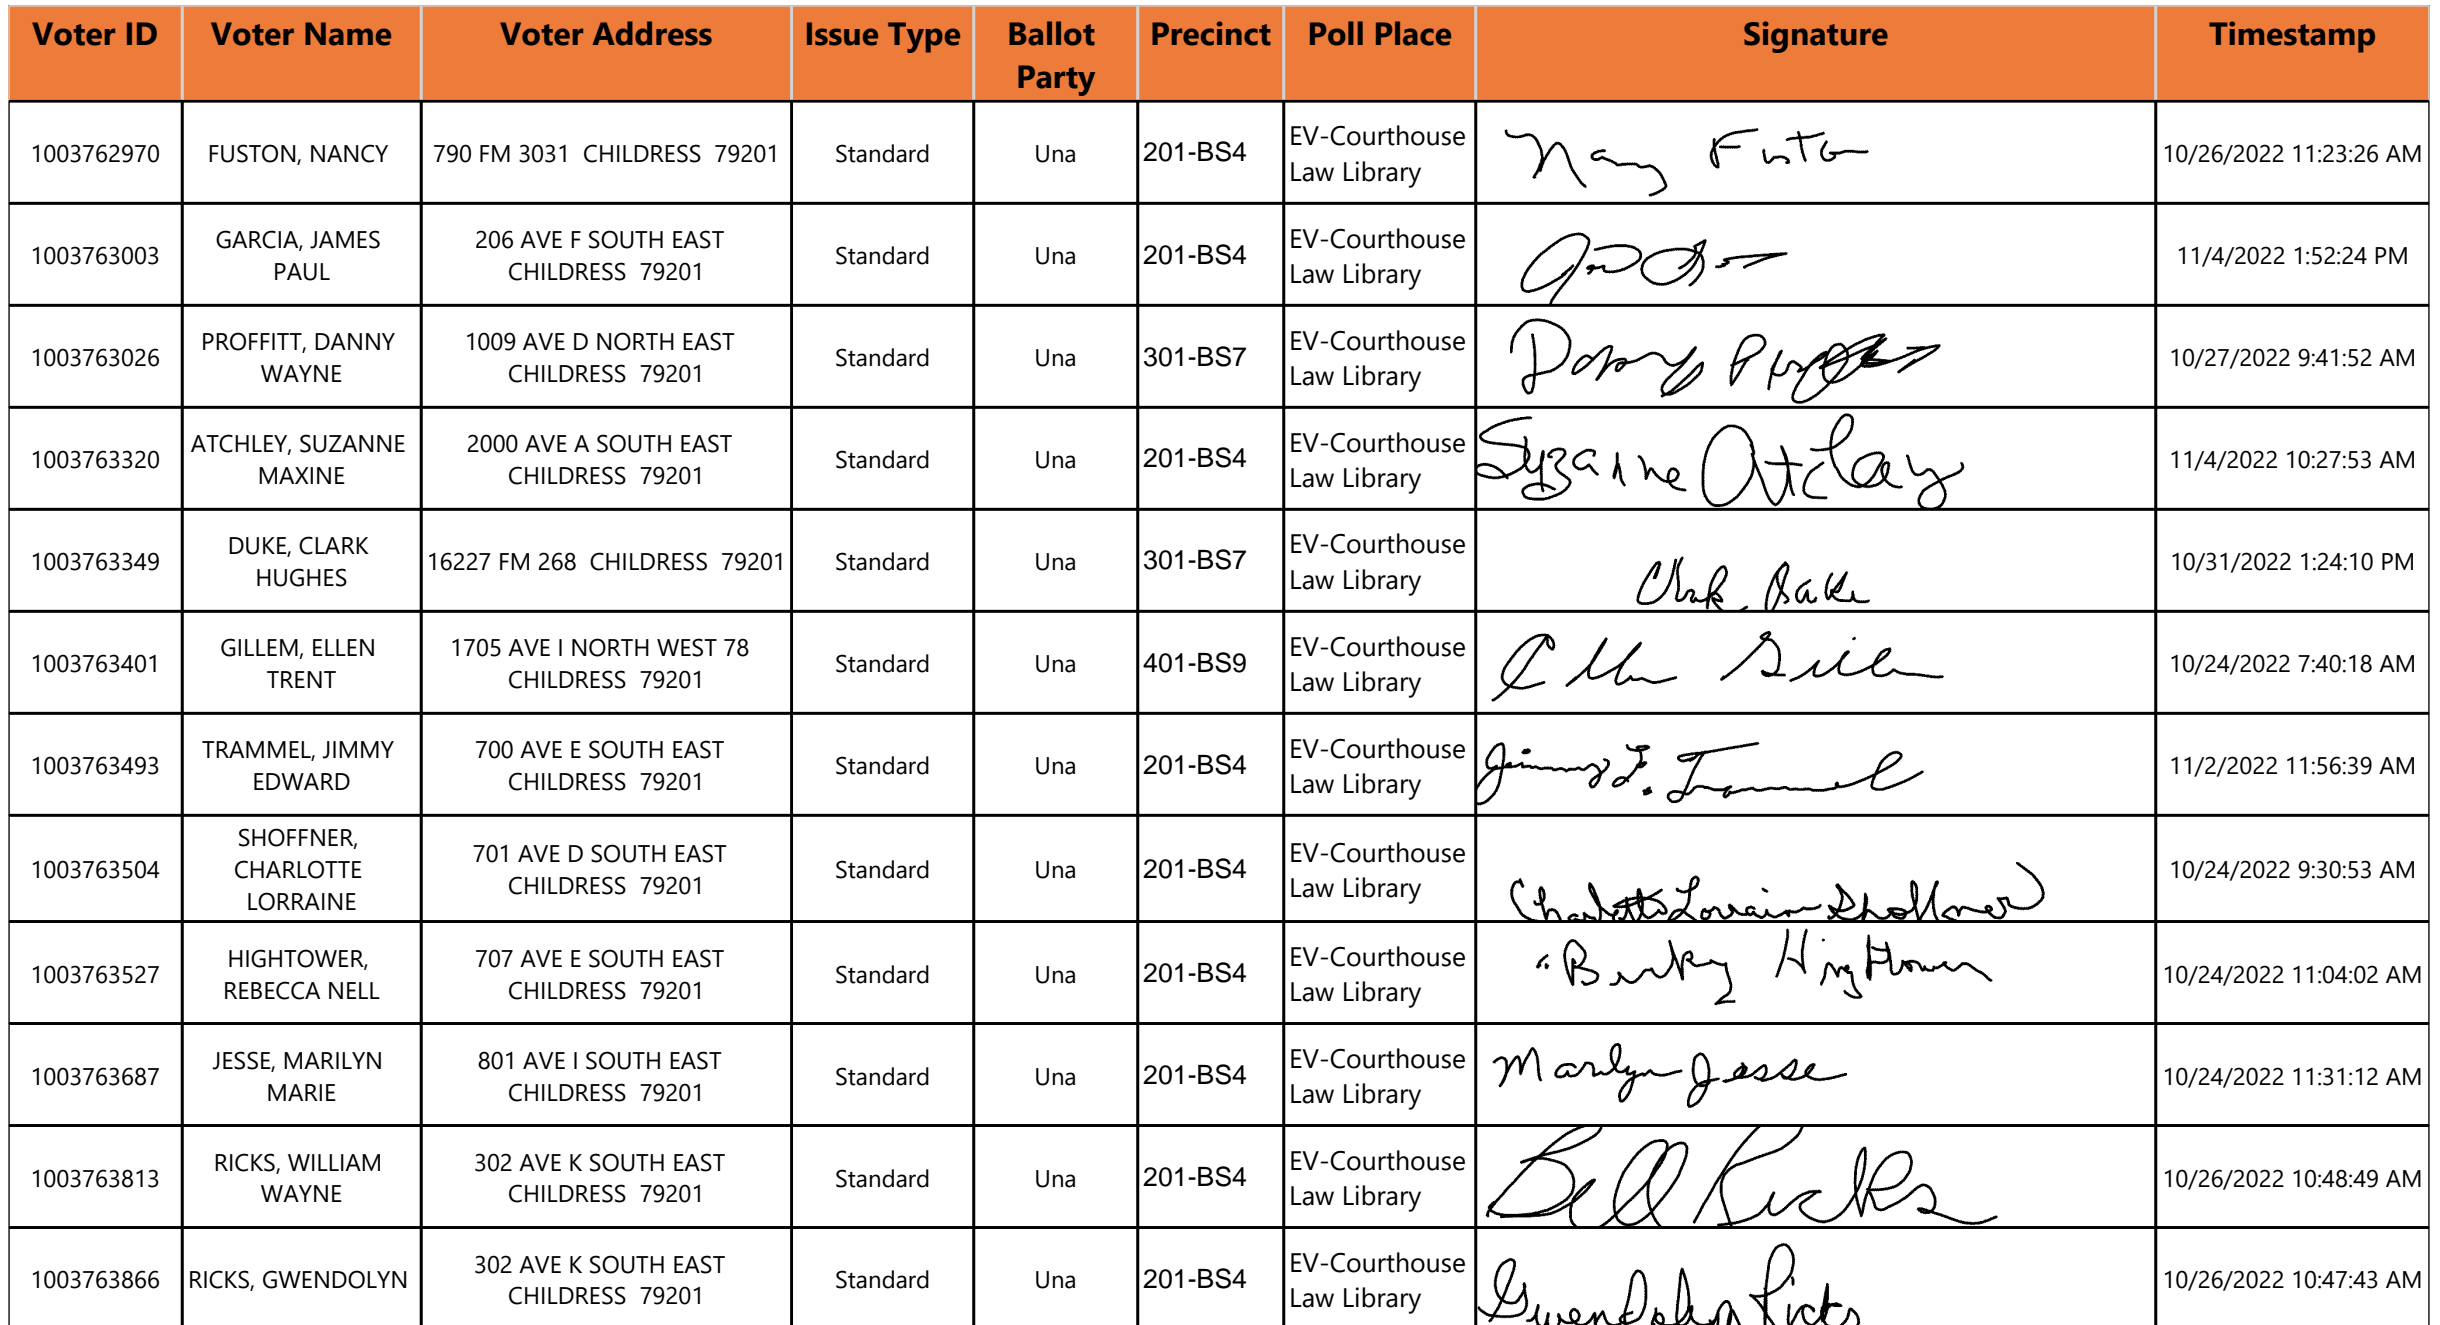 Voter ID Voter Name Voter Address Issue Type Ballot Party Precinct Poll Place Signature Timestamp
1003762970 FUSTON, NANCY 790 FM 3031 CHILDRESS 79201 Standard Una 201-BS4 EV-Courthouse Law Library Nancy Fuston 10/26/2022 11:23:26 AM
1003763003 GARCIA, JAMES PAUL 206 AVE F SOUTH EAST CHILDRESS 79201 Standard Una 201-BS4 EV-Courthouse Law Library 11/4/2022 1:52:24 PM
1003763026 PROFFITT, DANNY WAYNE 1009 AVE D NORTH EAST CHILDRESS 79201 Standard Una 301-BS7 EV-Courthouse Law Library Danny 10/27/2022 9:41:52 AM
1003763320 ATCHLEY, SUZANNE MAXINE 2000 AVE A SOUTH EAST CHILDRESS 79201 Standard Una 201-BS4 EV-Courthouse Law Library Suzanne Atchley 11/4/2022 10:27:53 AM
1003763349 DUKE, CLARK HUGHES 16227 FM 268 CHILDRESS 79201 Standard Una 301-BS7 EV-Courthouse Law Library Clark 10/31/2022 1:24:10 PM
1003763401 GILLEM, ELLEN TRENT 1705 AVE I NORTH WEST 78 CHILDRESS 79201 Standard Una 401-BS9 EV-Courthouse Law Library Ellen Gillem 10/24/2022 7:40:18 AM
1003763493 TRAMMEL, JIMMY EDWARD 700 AVE E SOUTH EAST CHILDRESS 79201 Standard Una 201-BS4 EV-Courthouse Law Library Jimmy E. Trammel 11/2/2022 11:56:39 AM
1003763504 SHOFFNER, CHARLOTTE LORRAINE 701 AVE D SOUTH EAST CHILDRESS 79201 Standard Una 201-BS4 EV-Courthouse Law Library Charlotte Lorraine Shoffner 10/24/2022 9:30:53 AM
1003763527 HIGHTOWER, REBECCA NELL 707 AVE E SOUTH EAST CHILDRESS 79201 Standard Una 201-BS4 EV-Courthouse Law Library Becky Hightower 10/24/2022 11:04:02 AM
1003763687 JESSE, MARILYN MARIE 801 AVE I SOUTH EAST CHILDRESS 79201 Standard Una 201-BS4 EV-Courthouse Law Library Marilyn Jesse 10/24/2022 11:31:12 AM
1003763813 RICKS, WILLIAM WAYNE 302 AVE K SOUTH EAST CHILDRESS 79201 Standard Una 201-BS4 EV-Courthouse Law Library Bill Ricks 10/26/2022 10:48:49 AM
1003763866 RICKS, GWENDOLYN 302 AVE K SOUTH EAST CHILDRESS 79201 Standard Una 201-BS4 EV-Courthouse Law Library Gwendolyn Ricks 10/26/2022 10:47:43 AM